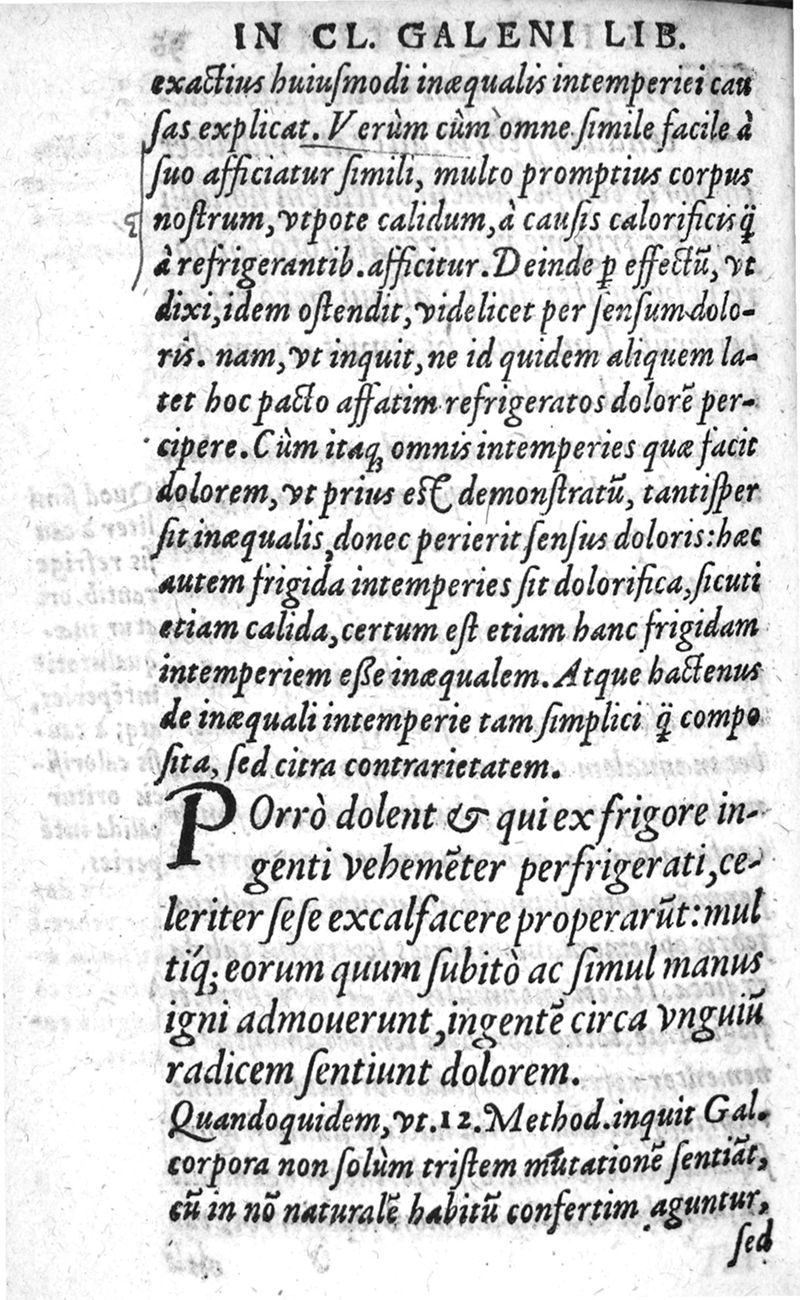 IN CL. GALENI LIB.
exactius huiuſmodi inæqualis intemperiei cau
ſas explicat. Verùm cùm omne ſimile facile à
ſuo afficiatur ſimili, multo promptius corpus
noſtrum, vtpote calidum, à cauſis calorificis q̃
à refrigerantib. afficitur. Deinde ꝑ effectũ, vt
dixi, idem oſtendit, videlicet per ſenſum dolo-
ris. nam, vt inquit, ne id quidem aliquem la-
tet hoc pacto affatim refrigeratos dolorẽ per-
cipere. Cùm itaq; omnis intemperies quæ facit
dolorem, vt prius eſt demonſtratũ, tantiſper
ſit inæqualis, donec perierit ſenſus doloris: hæc
autem frigida intemperies ſit dolorifica, ſicuti
etiam calida, certum eſt etiam hanc frigidam
intemperiem eſſe inæqualem. Atque hactenus
de inæquali intemperie tam ſimplici q̃ compo
ſita, ſed citra contrarietatem.
POrrò dolent & qui ex frigore in-
genti vehemẽter perfrigerati, ce-
leriter ſeſe excalfacere properarũt: mul
tíq; eorum quum ſubitò ac ſimul manus
igni admouerunt, ingentẽ circa vnguiũ
radicem ſentiunt dolorem.
Quandoquidem, vt .12. Method. inquit Gal.
corpora non ſolùm triſtem mutationẽ ſentiãt,
cũ in nõ naturalẽ habitũ confertim aguntur,
ſed